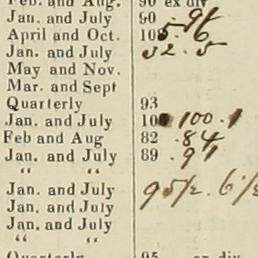 Feb. and Aug. 90 ex div
Jan. and July 90 91
April and Oct. 105 6
Jan. and July 52. 5
May and Nov.
Mar. and Sept
Quarterly 93
Jan. and July 100 100.1
Feb and Aug 82 .84
Jan. and July 89 .91
" "
Jan. and July 95½. 6½
Jan. and July
Jan. and July
" "
Quarterly 95 ex div